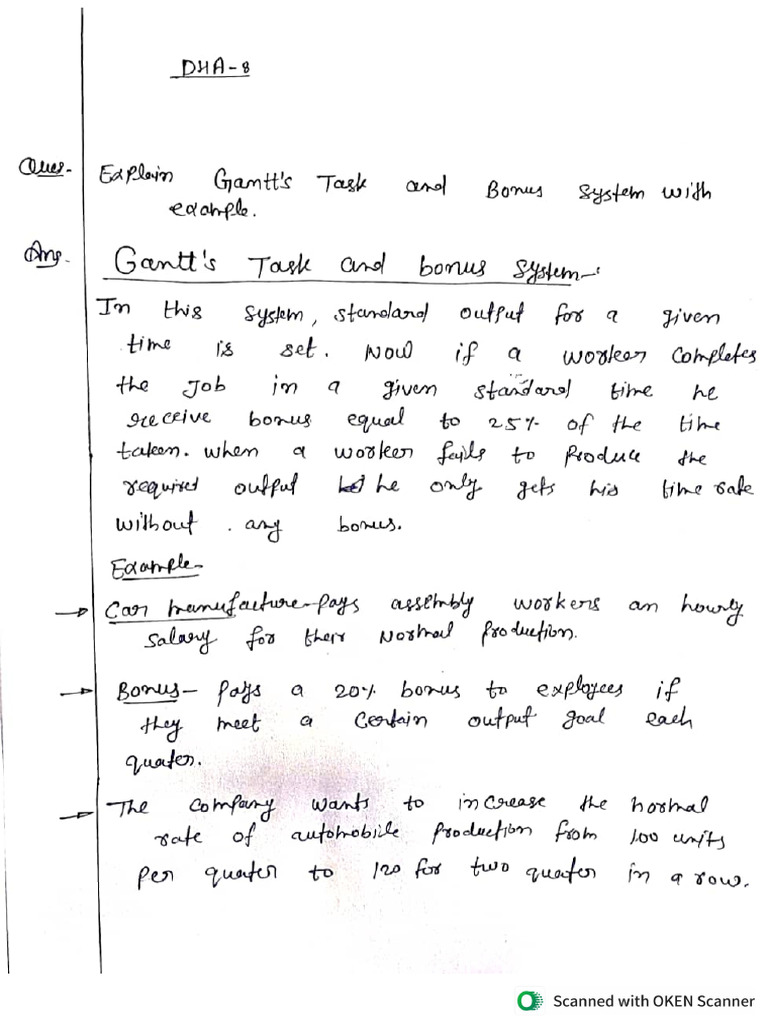 DHA-8
Ques- Explain Gantt's Task and Bonus System with
example.
Ans- Gantt's Task and bonus system-:
In this system, standard output for a given
time is set. Now if a worker completes
the Job in a given standard time he
receive bonus equal to 25% of the time
taken. when a worker fails to produce the
required output he only gets his time rate
without any bonus.
Example-
→ Car manufacture-Pays assembly workers an hourly
salary for their Normal Production.
→ Bonus- Pays a 20% bonus to exployees if
they meet a certain output goal each
quater.
→ The company wants to increase the normal
rate of automobile production from 100 units
per quater to 120 for two quater in a row.
Scanned with OKEN Scanner